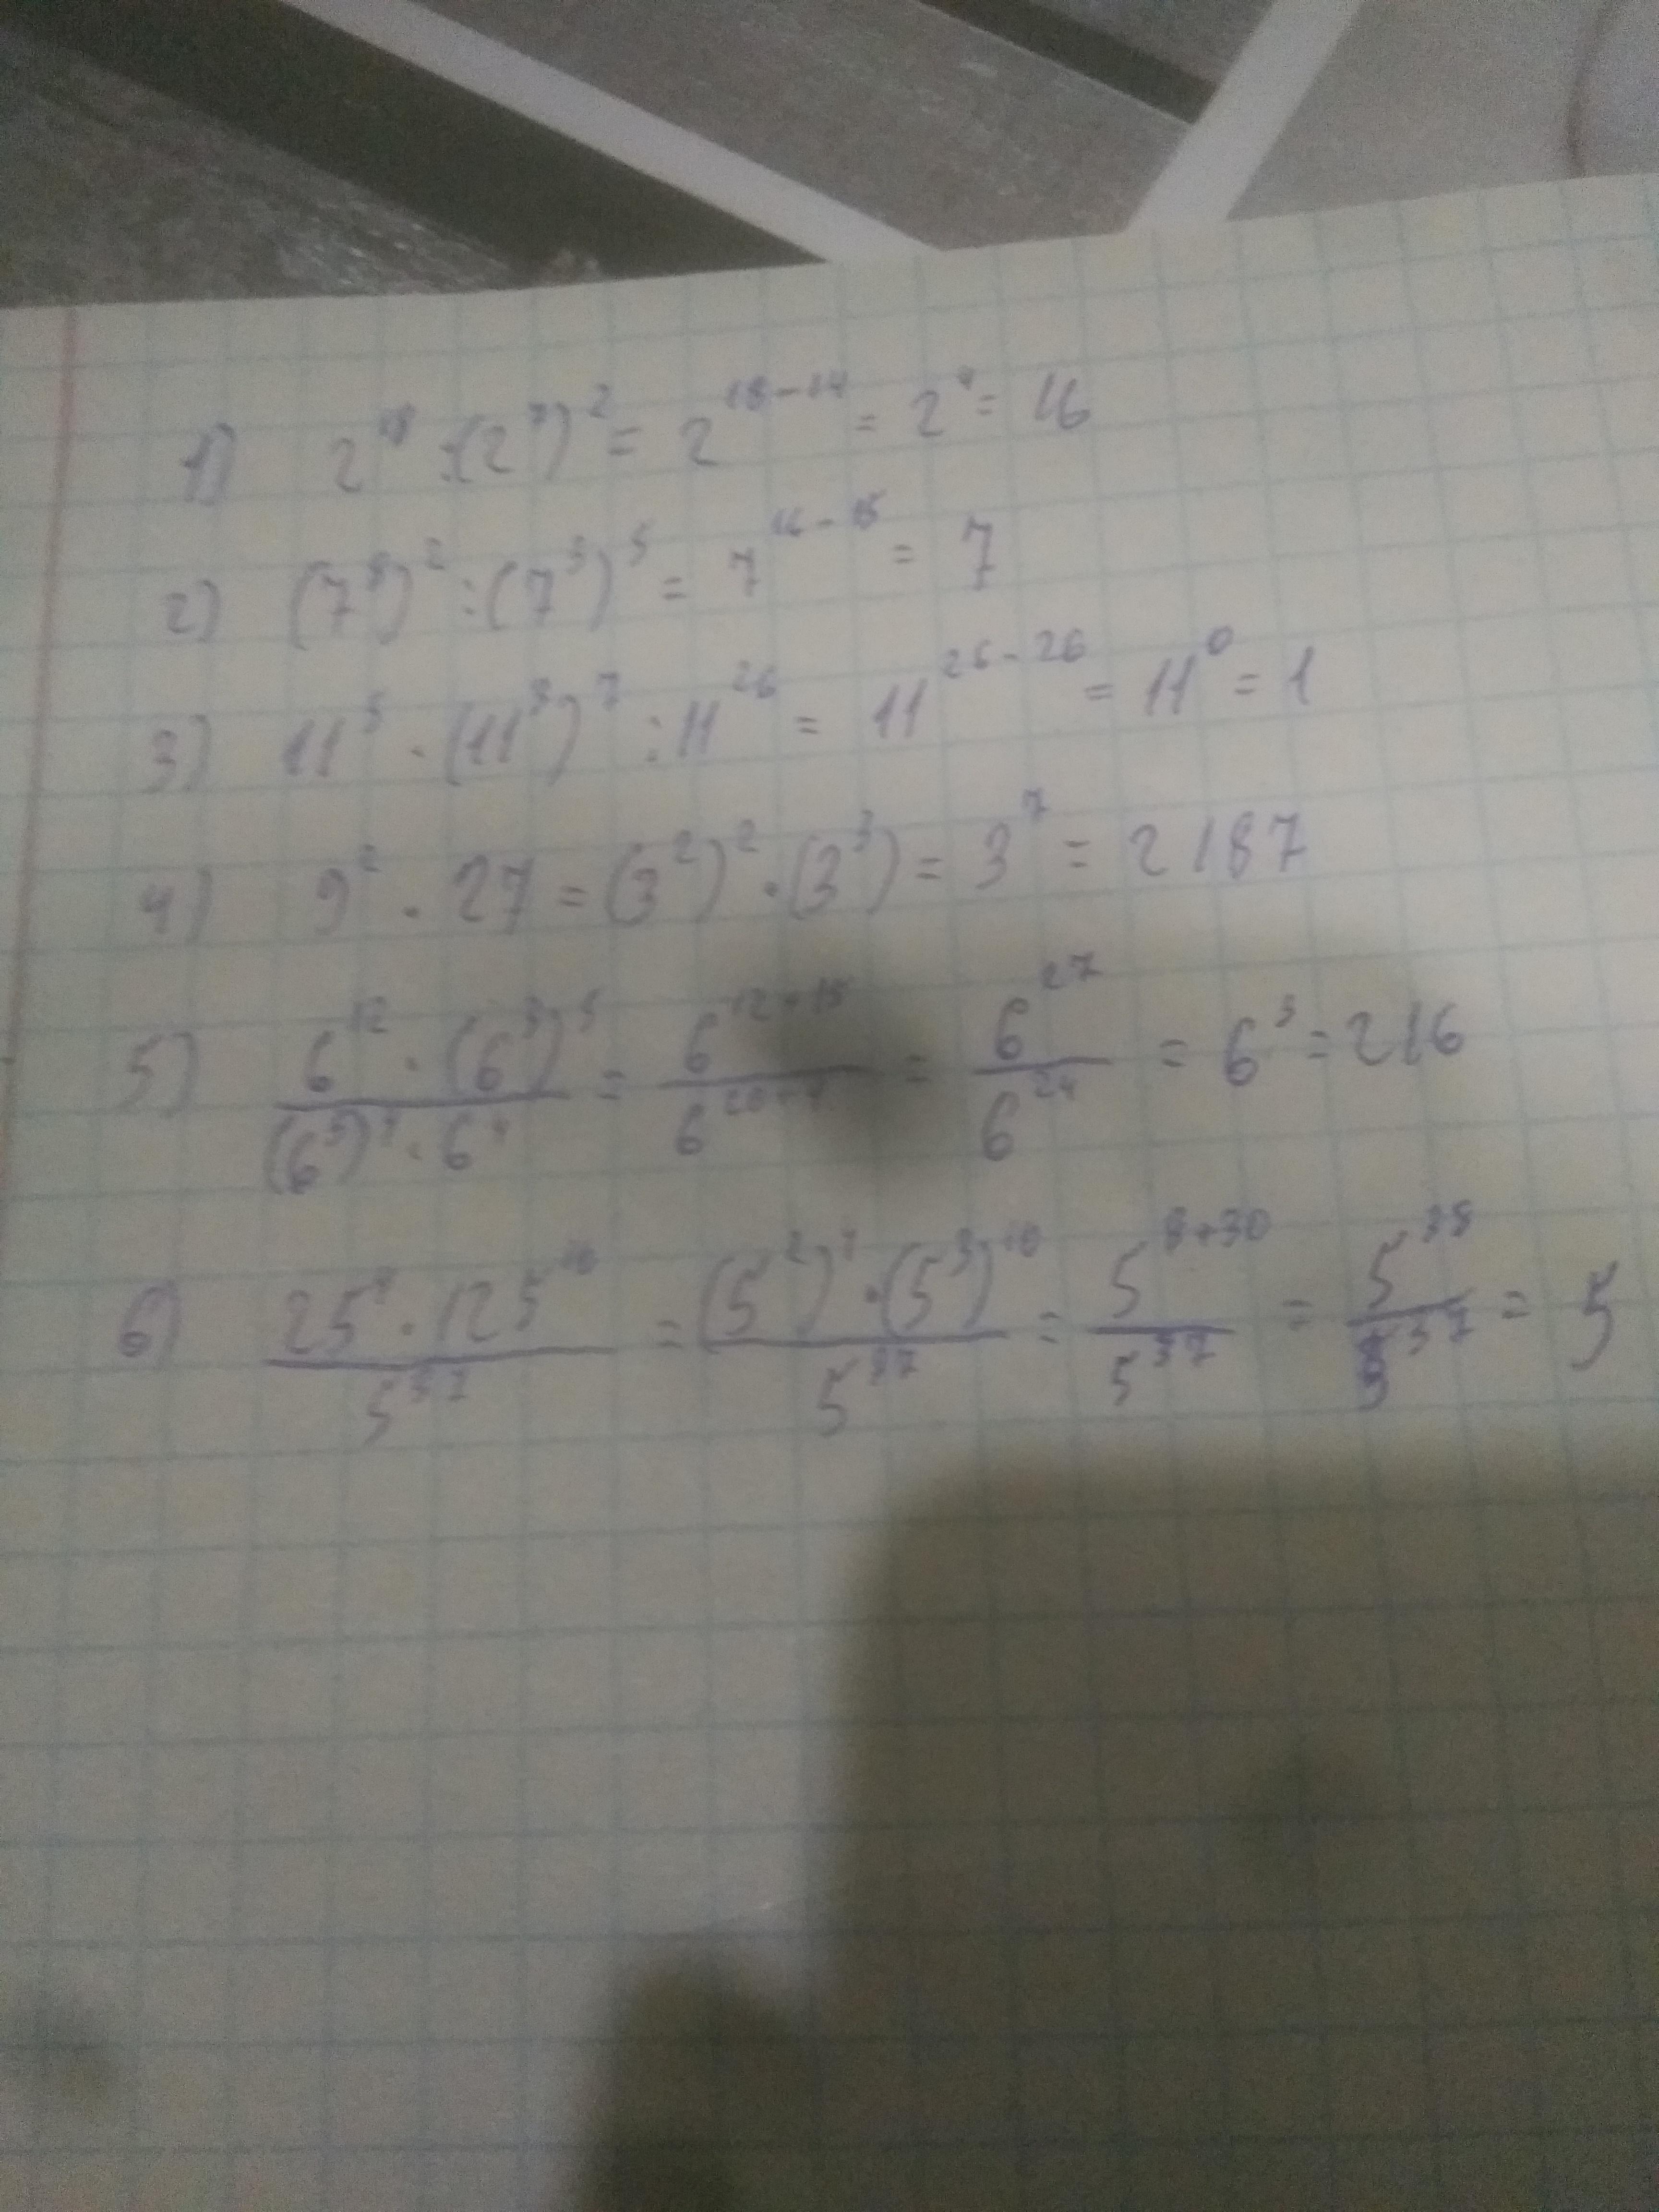 1) 2^18 : (2^7)^2 = 2^18-14 = 2^4 = 16
2) (7^8)^2 : (7^3)^5 = 7^16-15 = 7
3) 11^5 · (11^3)^7 : 11^26 = 11^26-26 = 11^0 = 1
4) 9^2 · 27 = (3^2)^2 · (3^3) = 3^7 = 2187
5) 6^12 · (6^3)^5 / (6^5)^4 · 6^4 = 6^12+15 / 6^20+4 = 6^27 / 6^24 = 6^3 = 216
6) 25^4 · 125^10 / 5^37 = (5^2)^4 · (5^3)^10 / 5^37 = 5^8+30 / 5^37 = 5^38 / 5^37 = 5